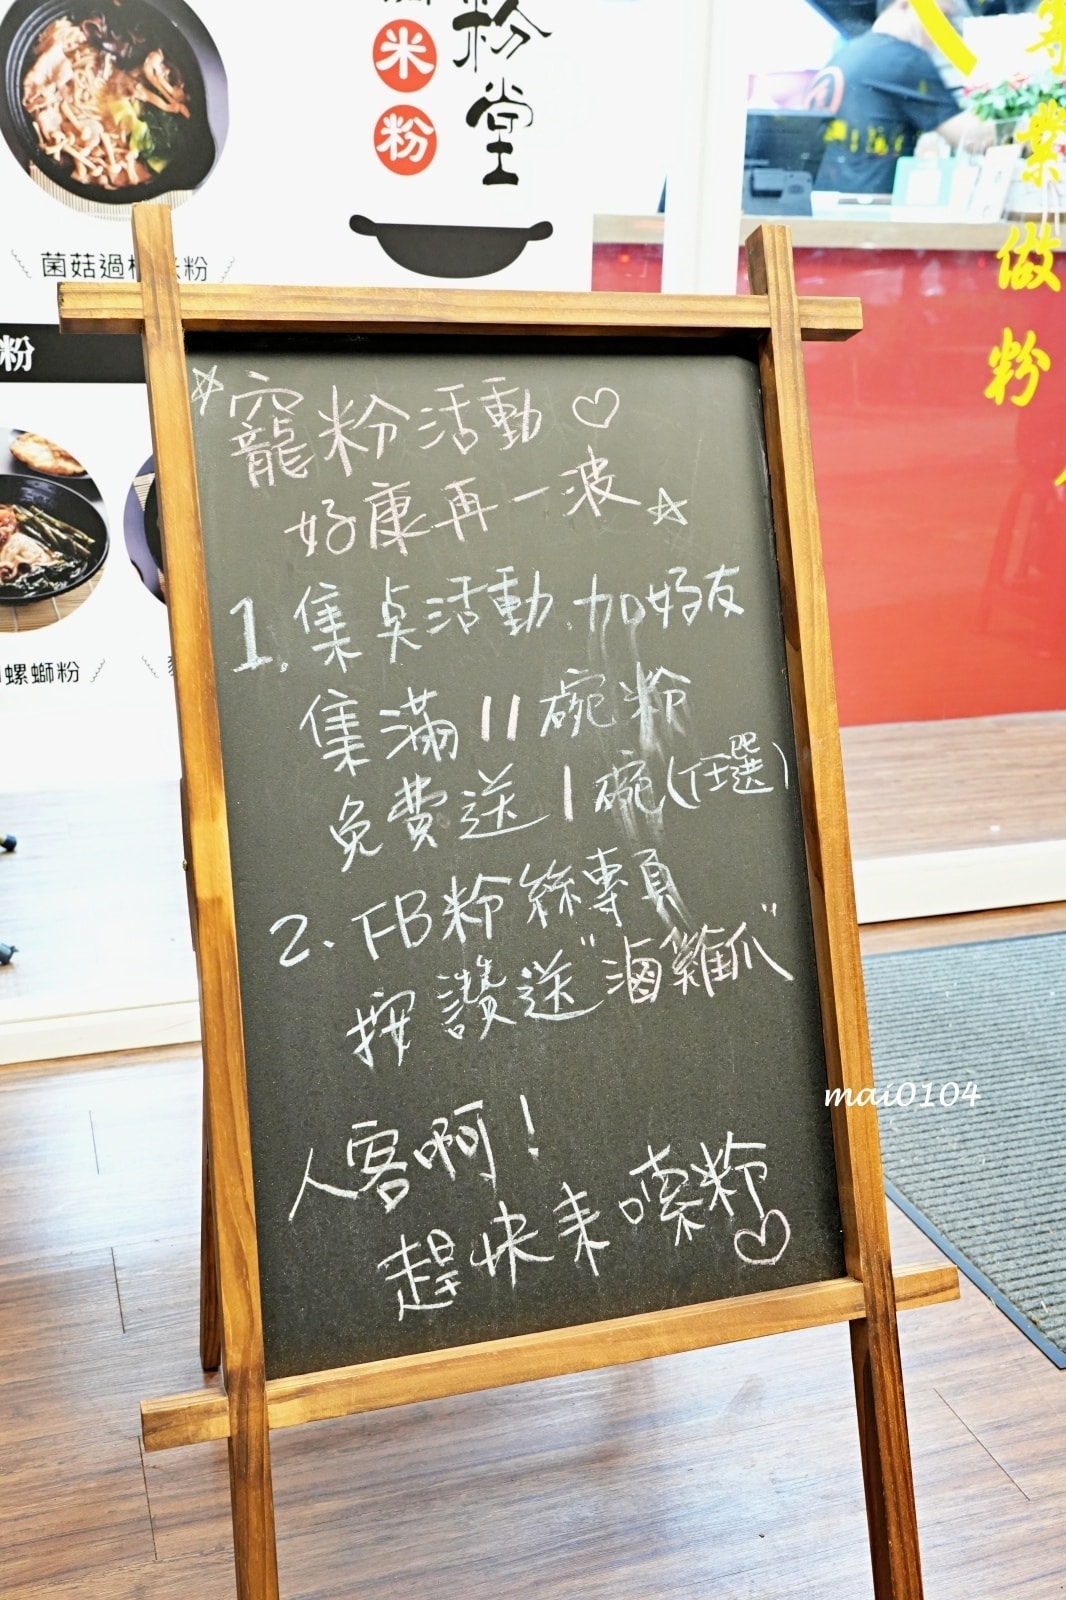 粉堂
米粉
菌菇過橋米粉
粉
螺螄粉
業做粉
☆寵粉活動♡
好康再一波☆
1.集点活動.加好友
集滿11碗粉
免費送1碗(任選)
2.FB粉絲專頁
按讚送"滷雞爪"
人客啊!
趕快來嗦粉♡
mai0104